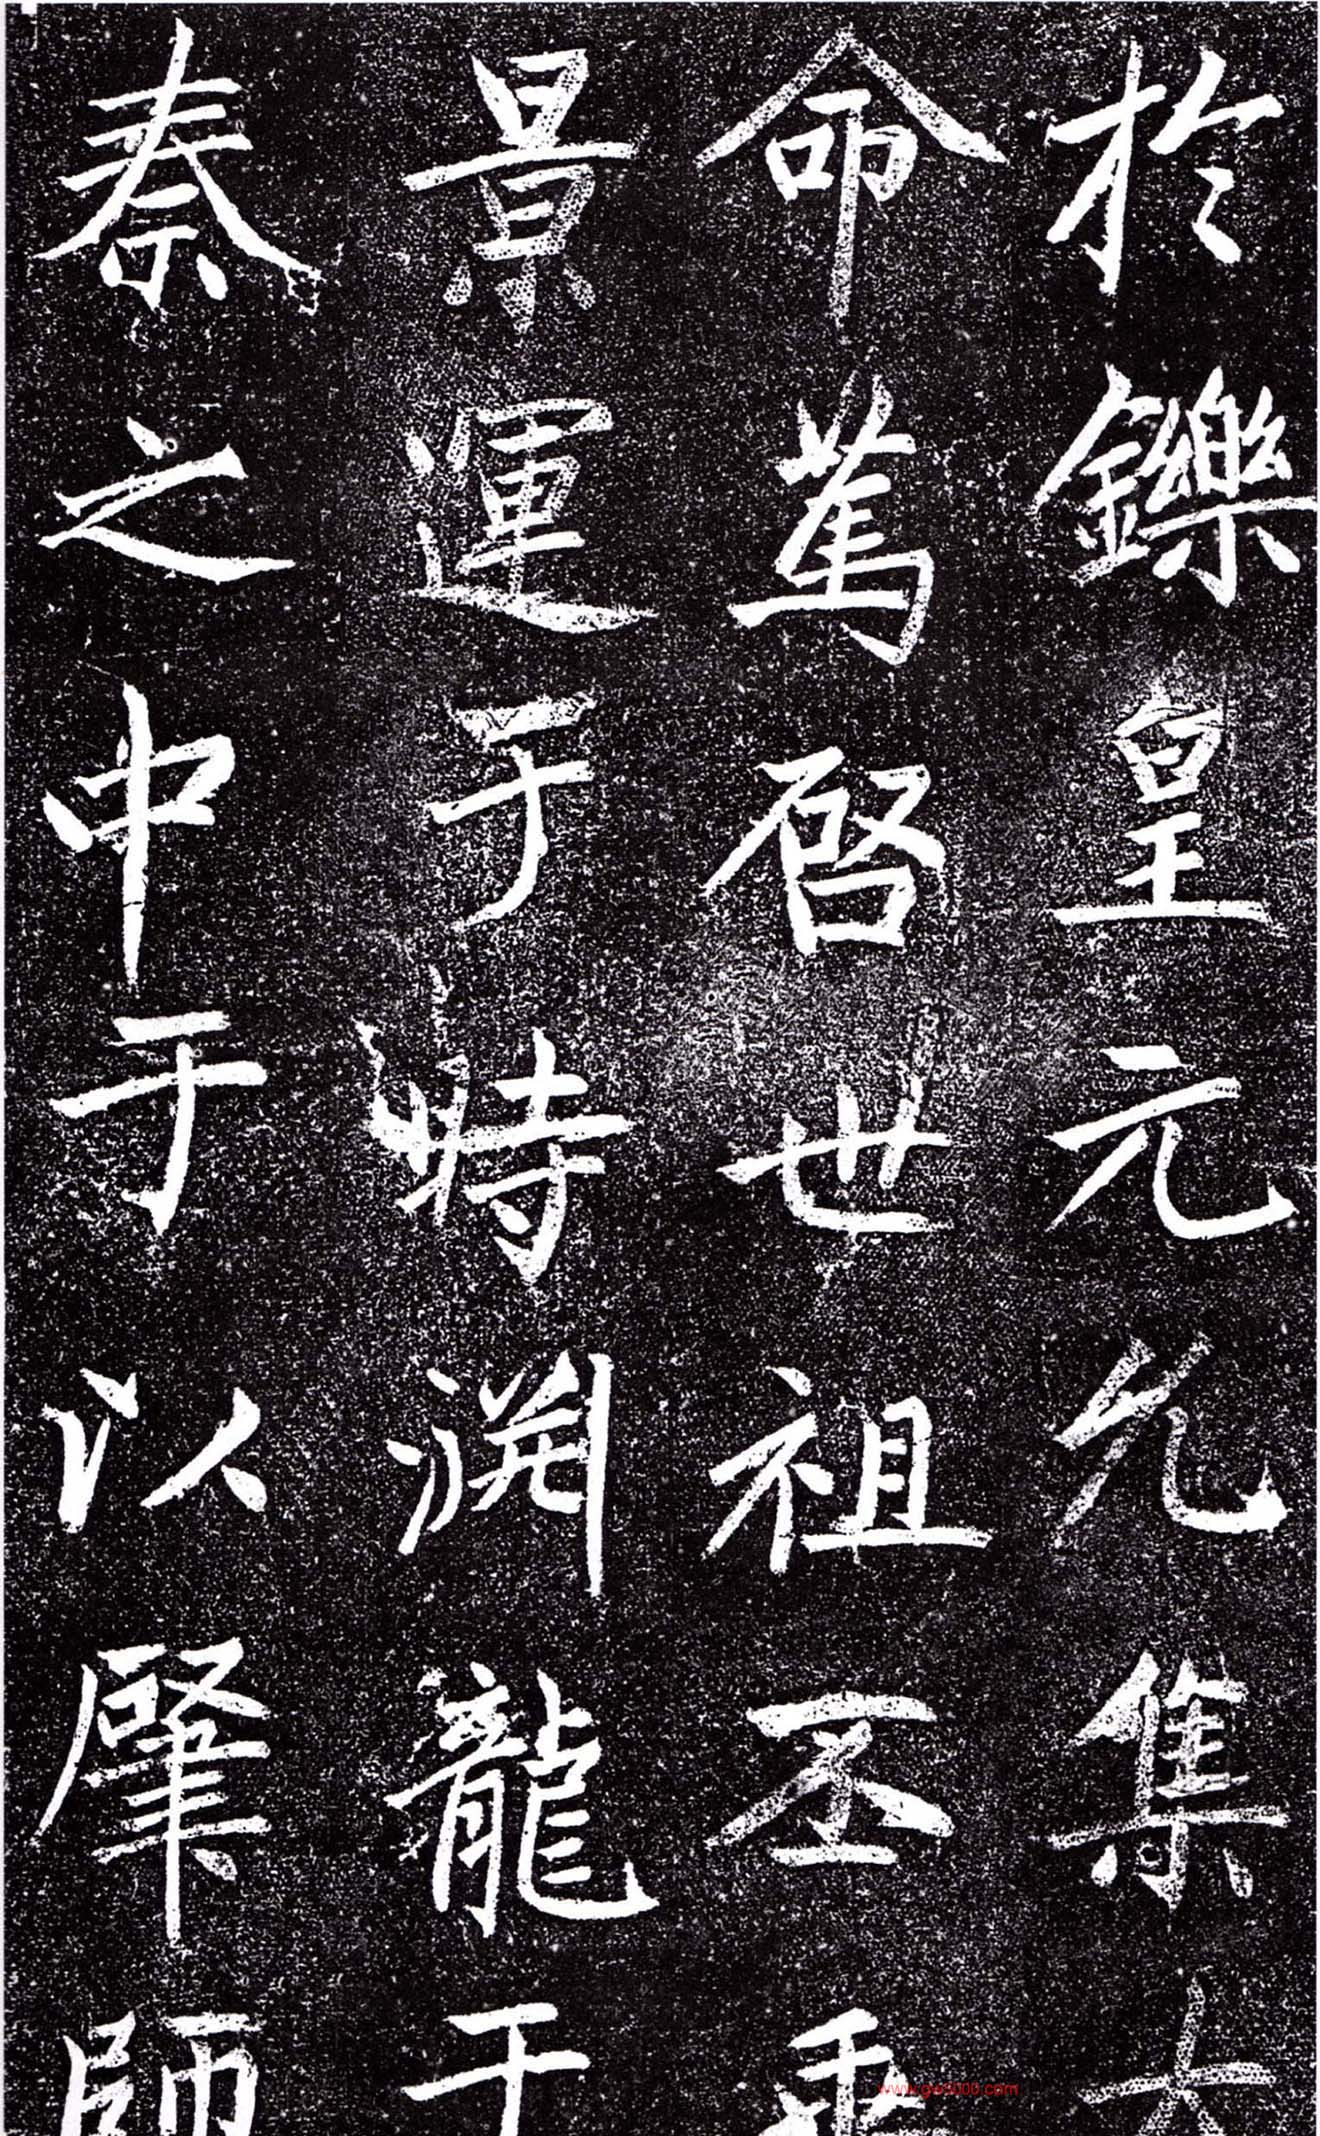 於鑠皇元允集大
命篤啓世祖丕乗
景運于時渊龍于
秦之中于以肈師
www.gw5000.com